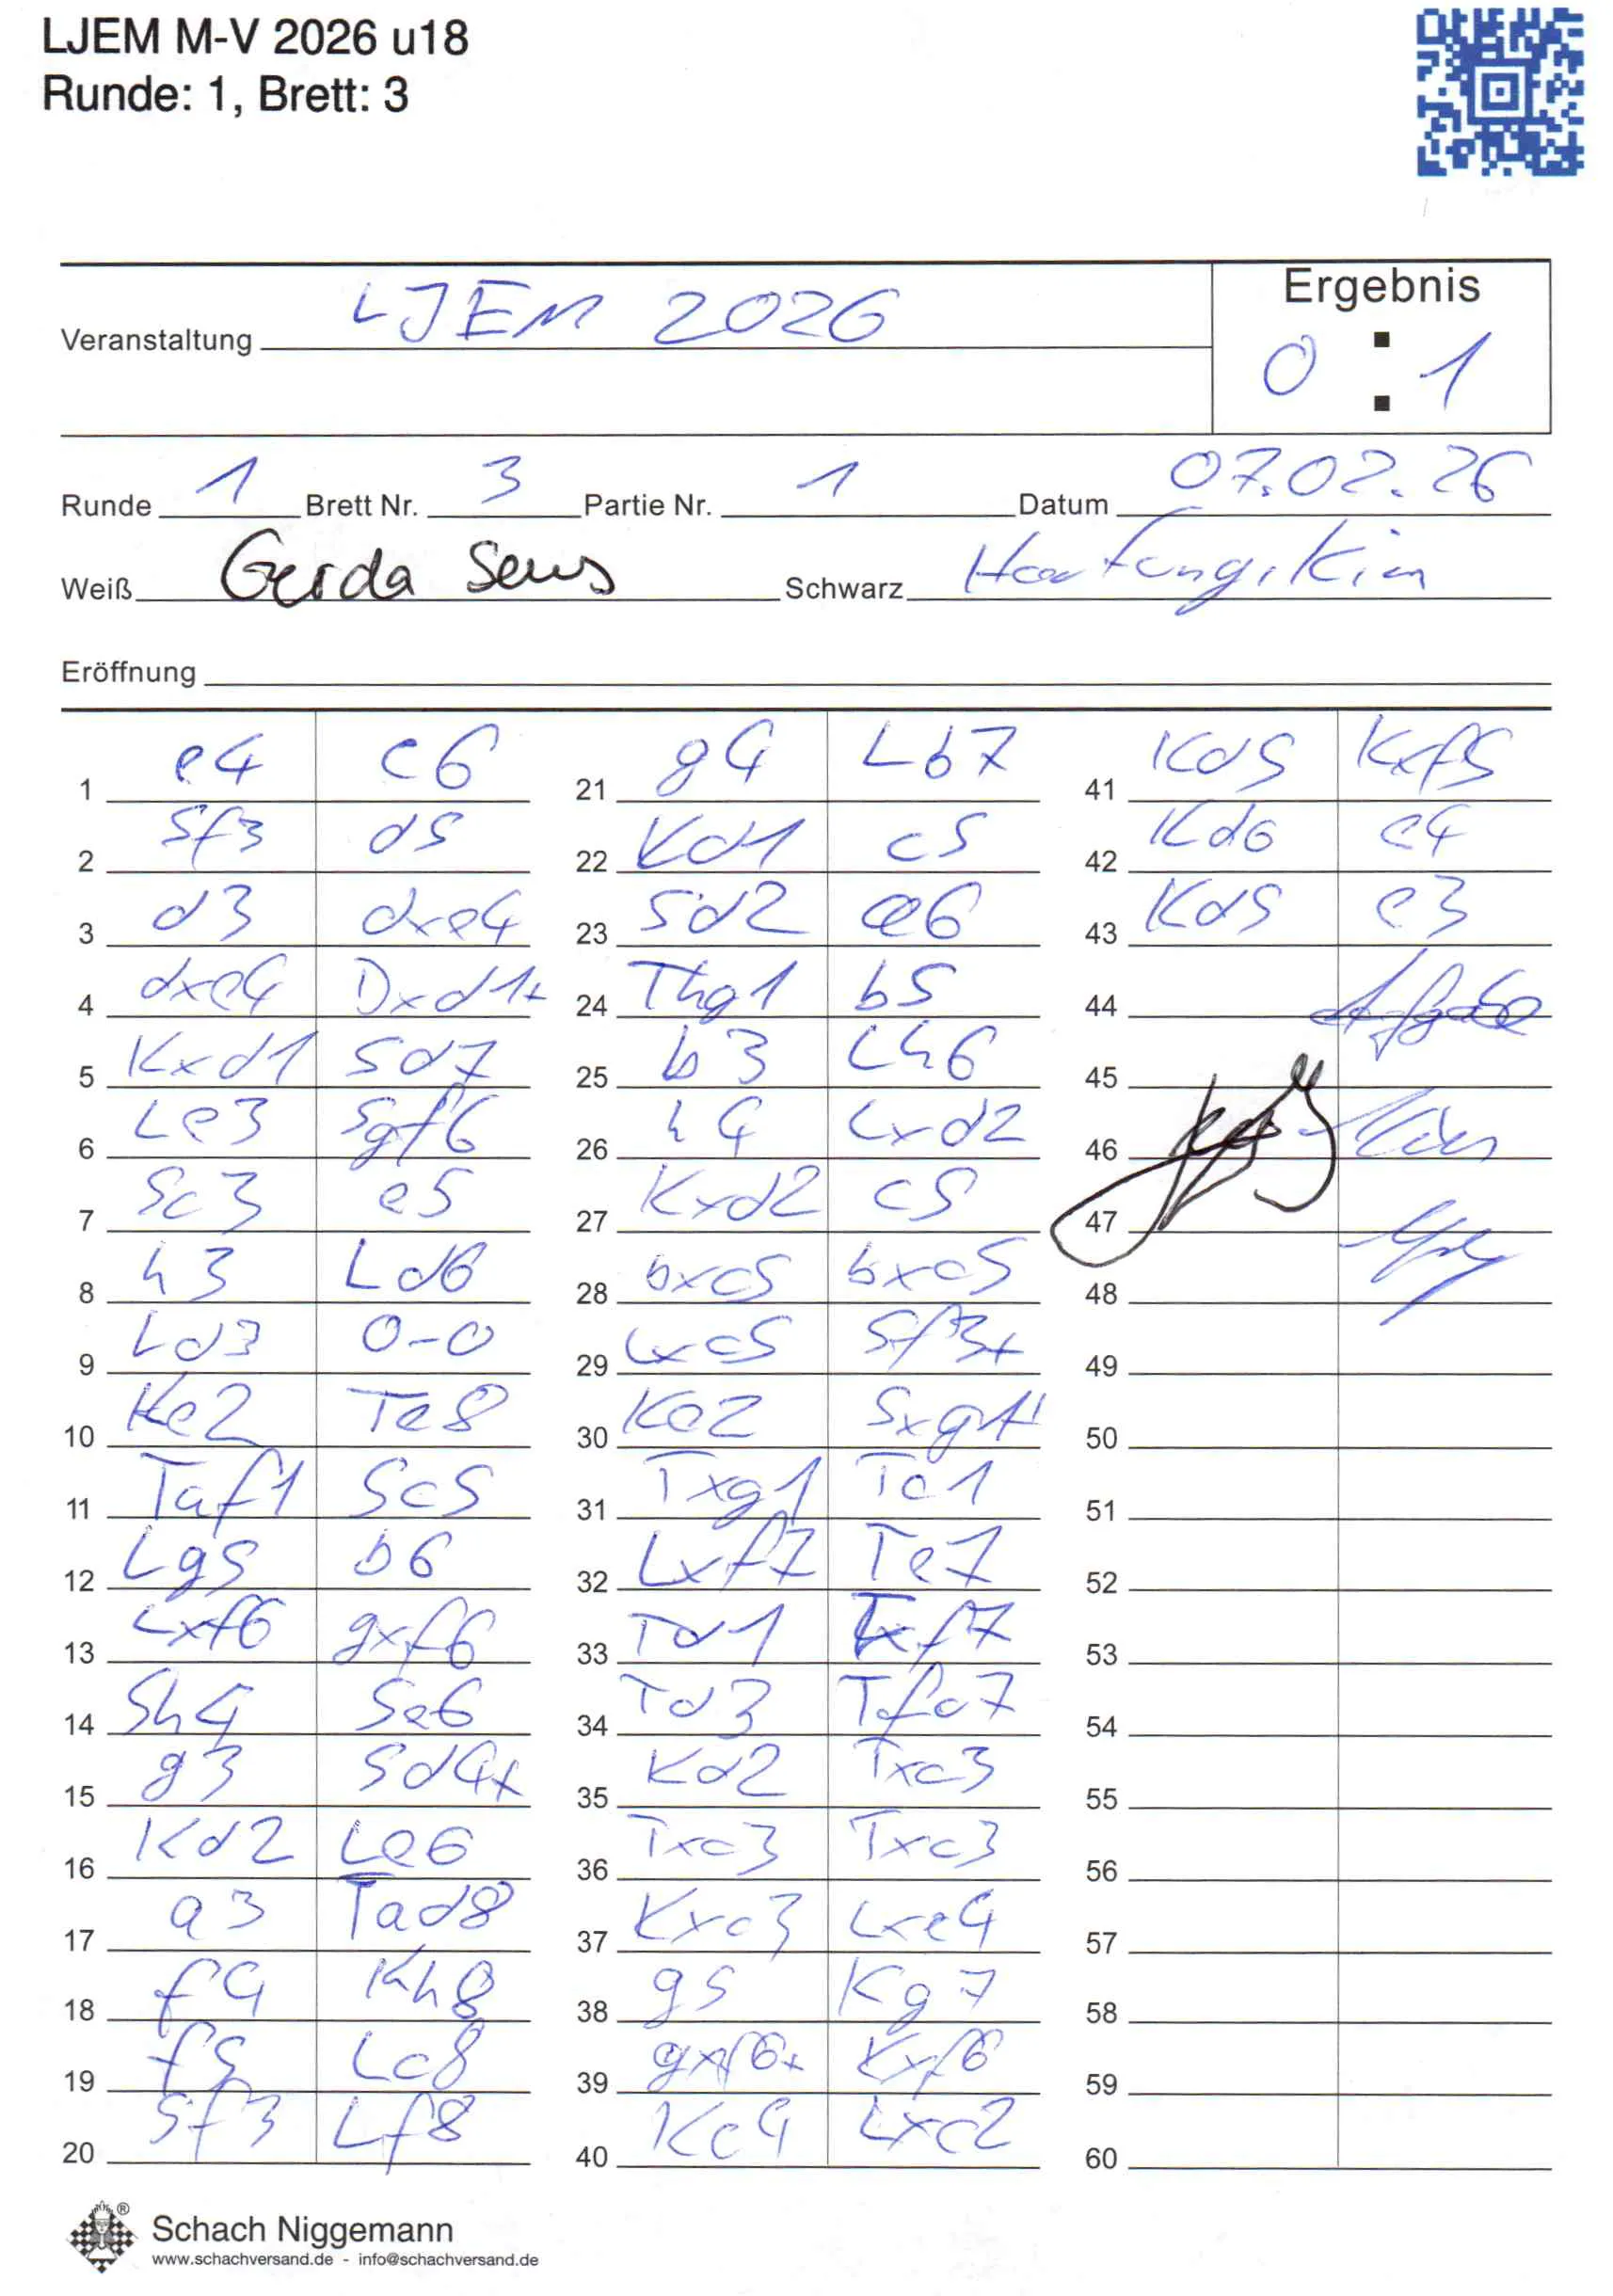 LJEM M-V 2026 u18
Runde: 1, Brett: 3
Ergebnis
Veranstaltung LJEM 2026
0 : 1
Runde 1 Brett Nr. 3 Partie Nr. 1 Datum 07.02.26
Weiß Gerda Sens Schwarz Hartung, Kim
Eröffnung
1 e4 e6
2 Sf3 d5
3 d3 dxe4
4 dxe4 Dxd1+
5 Kxd1 Sd7
6 Le3 Sgf6
7 Sc3 e5
8 h3 Ld6
9 Ld3 0-0
10 Ke2 Te8
11 Taf1 Sc5
12 Lg5 b6
13 Lxf6 gxf6
14 Sh4 Se6
15 g3 Sd4+
16 Kd2 Le6
17 a3 Tad8
18 f4 Kh8
19 f5 Lc8
20 Sf3 Lf8
21 g4 Lb7
22 Kd1 c5
23 Sd2 a6
24 Thg1 b5
25 b3 Lh6
26 h4 Lxd2
27 Kxd2 c5
28 bxc5 bxc5
29 Lxc5 Sf3+
30 Ke2 Sxg1+
31 Txg1 Tc1
32 Lxf7 Te7
33 Td1 Txf7
34 Td3 Tfc7
35 Kd2 Txc3
36 Txc3 Txc3
37 Kxc3 Lxe4
38 g5 Kg7
39 gxf6+ Kxf6
40 Kc4 Lxc2
41 Kd5 Kxf5
42 Kd6 e4
43 Kd5 e3
44 Aufgabe
45
46
47
48
49
50
51
52
53
54
55
56
57
58
59
60
Schach Niggemann ®
www.schachversand.de - info@schachversand.de